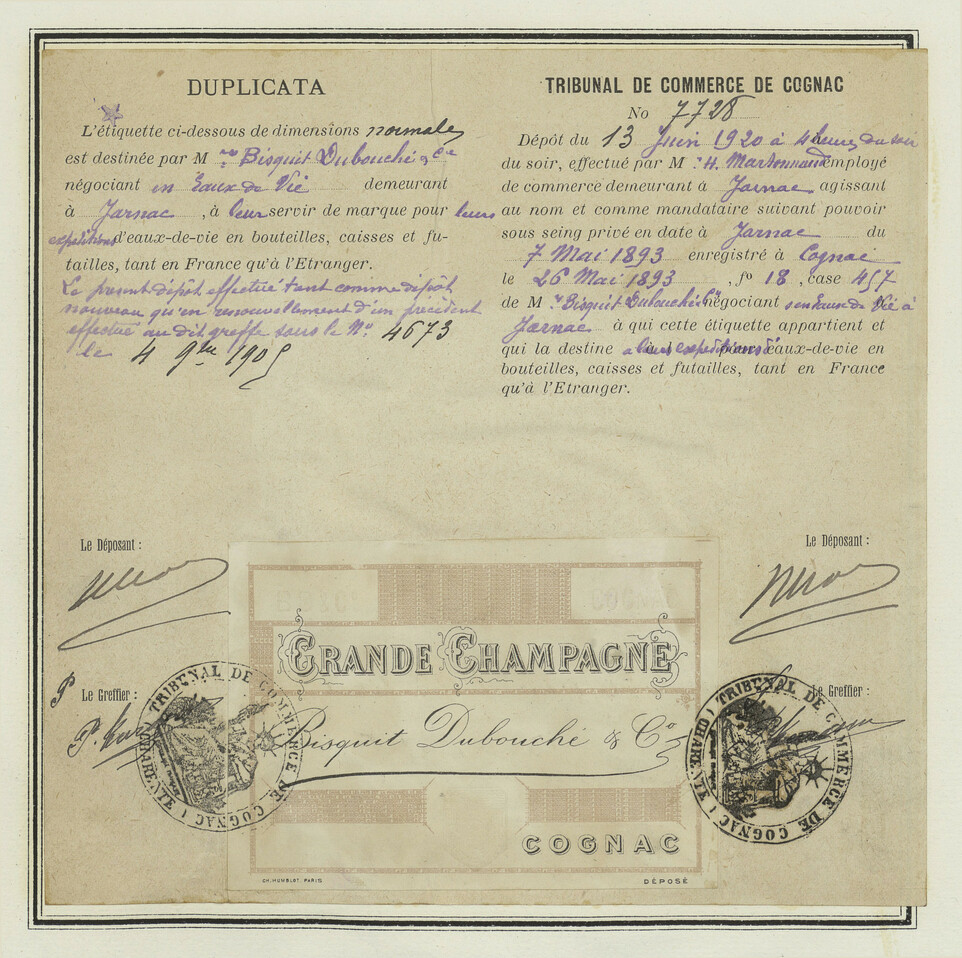 DUPLICATA
L'étiquette ci-dessous de dimensions normales
est destinée par M rs Bisquit Dubouché & Cie
négociant en Eaux de Vie demeurant
à Jarnac, à leur servir de marque pour leurs
expéditions d'eaux-de-vie en bouteilles, caisses et fu-
tailles, tant en France qu'à l'Etranger.
Le présent dépôt effectué tant comme dépôt
nouveau qu'en renouvellement d'un précédent
effectué au dit greffe sous le No. 4673
le 4 9bre 1905
TRIBUNAL DE COMMERCE DE COGNAC
No 7728
Dépôt du 13 Juin 1920 à 4 heures du soir
du soir, effectué par M : H. employé
de commerce demeurant à Jarnac agissant
au nom et comme mandataire suivant pouvoir
sous seing privé en date à Jarnac du
7 Mai 1893 enregistré à Cognac
le 26 Mai 1893, fo 18, case 457
de M rs Bisquit Dubouché & Cie négociants en Eaux de Vie à
Jarnac à qui cette étiquette appartient et
qui la destine à leurs expéditions d'eaux-de-vie en
bouteilles, caisses et futailles, tant en France
qu'à l'Etranger.
Le Déposant :
Le Déposant :
Le Greffier :
Le Greffier :
TRIBUNAL DE COMMERCE DE COGNAC (CHARENTE)
TRIBUNAL DE COMMERCE DE COGNAC (CHARENTE)
GRANDE CHAMPAGNE
Bisquit Dubouché & Co
COGNAC
CH. HUMBLOT. PARIS
DÉPOSÉ